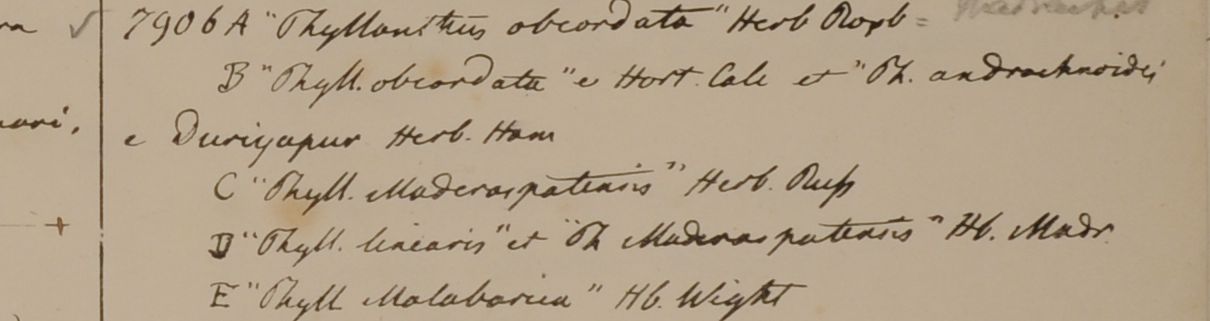 7906 A "Phyllanthus obcordata" Herb Roxb =
B "Phyll. obcordata" e Hort. Calc et "Ph. andrachnoides
e Duriyapur Herb. Ham
C "Phyll. Maderaspatensis" Herb. Russ
D "Phyll. linearis" et "Ph Maderaspatensis" Hb. Madr.
E "Phyll Malabarica" Hb. Wight